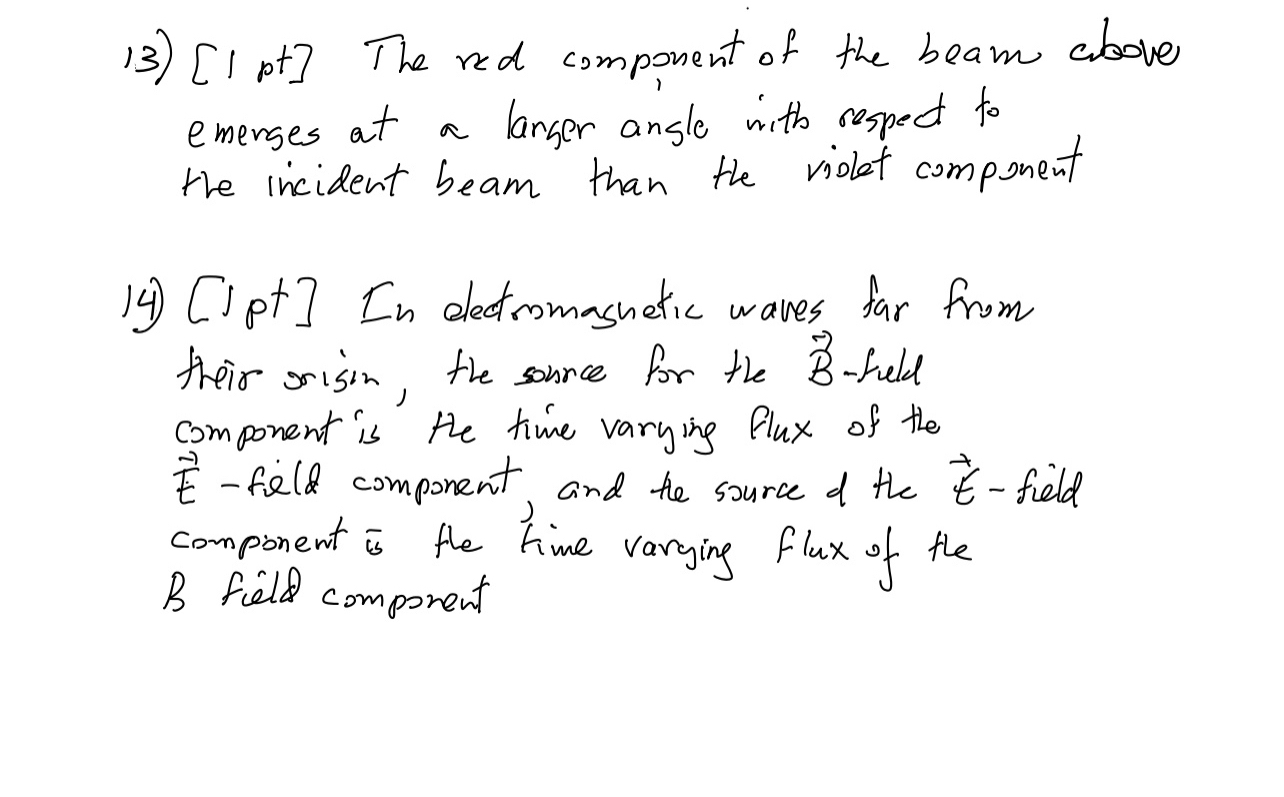 13) [1 pt] The red component of the beam above
emerges at a larger angle with respect to
the incident beam than the violet component
14) [1 pt] In electromagnetic waves far from
their origin, the source for the B⃗-field
component is the time varying flux of the
E⃗-field component, and the source of the E⃗-field
component is the time varying flux of the
B field component